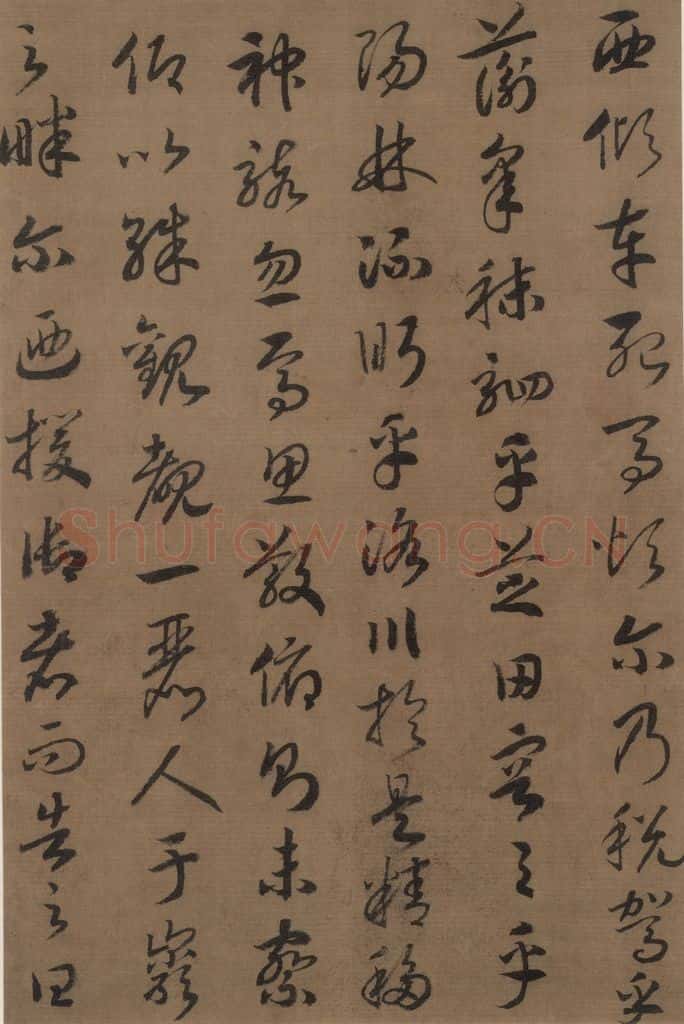 西傾車殆馬煩尔乃税駕乎
蘅皋秣駟乎芝田容与乎
陽林流眄乎洛川於是精移
神駭忽焉思散俯則未察
仰以殊觀覩一麗人于巖
之畔尔迺援御者而告之曰
Shufawang.CN